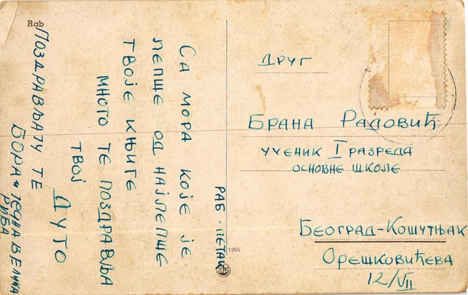 Rab
Са мора које је
лепше од најлепше
твоје књиге
много те поздравља
твој
Дуго
Поздрављају те
Бора и једна велика
риба
Раб - петак
Друг
Брана Радовић
ученик I разреда
основне школе
Београд-Кошутњак
Орешковићева
12/VII